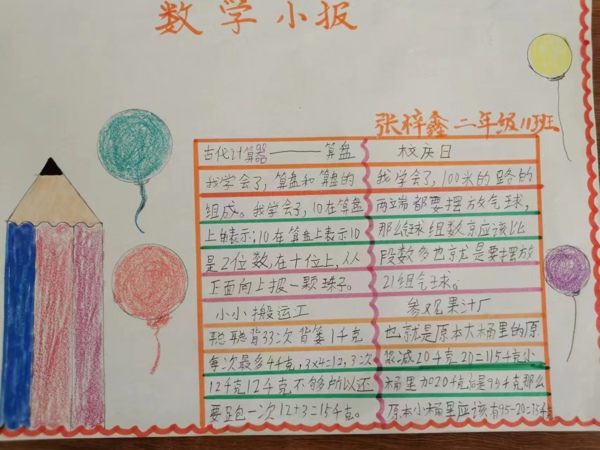 数学小报
张梓鑫 二年级11班
古代计算器——算盘
我学会了,算盘和算盘的
组成。我学会了,10在算盘
上由表示;10在算盘上表示10
是2位数,在十位上,从
正面向上拨一颗珠子。
小小搬运工
聪聪背33次 背篓1千克
每次最多4千克,3×4=12,3次
12千克12千克不够所以还
要跑一次12+3=15千克。
校庆日
我学会了,100米的路的
两端都要摆放气球,
那么气球组数京应该比
段数多也就是要摆放
21组气球。
参观果汁厂
也就是原本大桶里的原
浆减20千克20=115千克小
桶里加20千克后是95千克那么
原本小桶里应该有95-20=75千